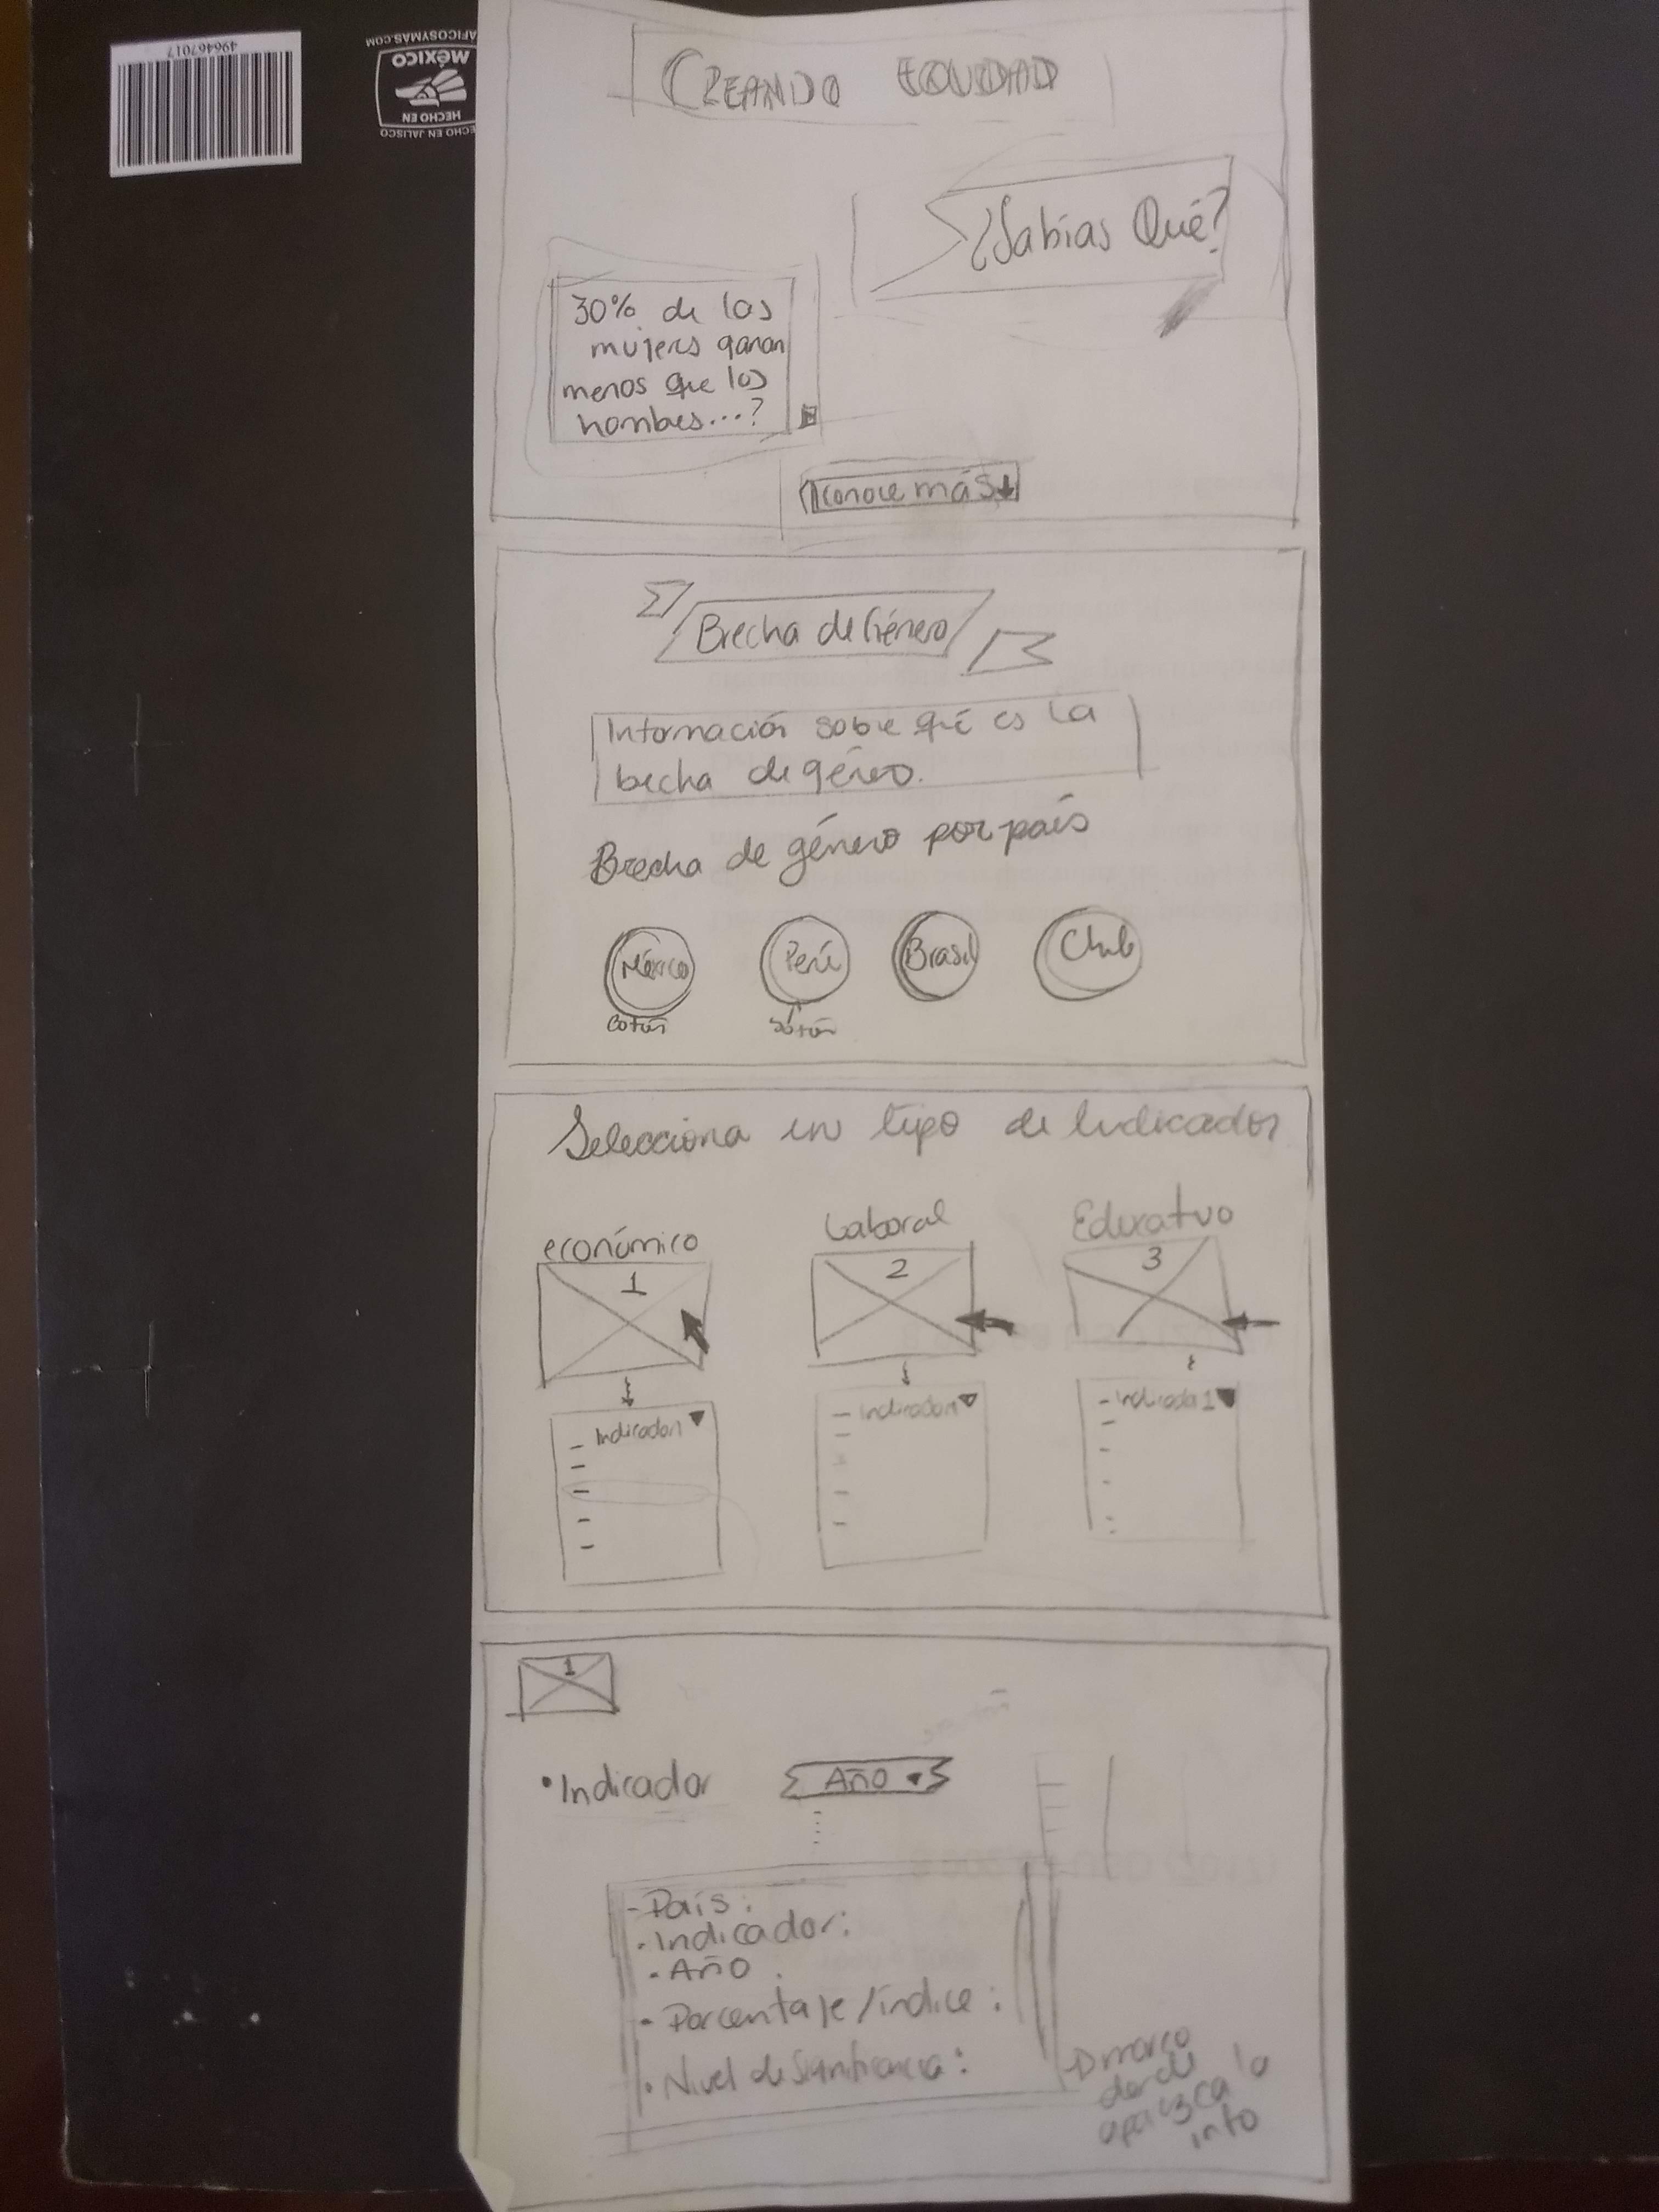 496467017
AFICOSYMAS.COM
MÉXICO
HECHO EN
ECHO EN JALISCO
CREANDO EQUIDAD
¿Sabías Qué?
30% de las
mujeres ganan
menos que los
hombes...?
Conoce más
Brecha de Género
Información sobre qué es la
becha de género.
Brecha de género por país
México
Perú
Brasil
Chile
botón
botón
Selecciona un tipo de Indicador
económico
Laboral
Educativo
1
2
3
Indicador1
- Indicador1
- Indicador 1
1
• Indicador
Año
- País:
• Indicador:
• Año
• Porcentaje/índice:
• Nivel de Significancia:
marco
donde
aparezca la
info